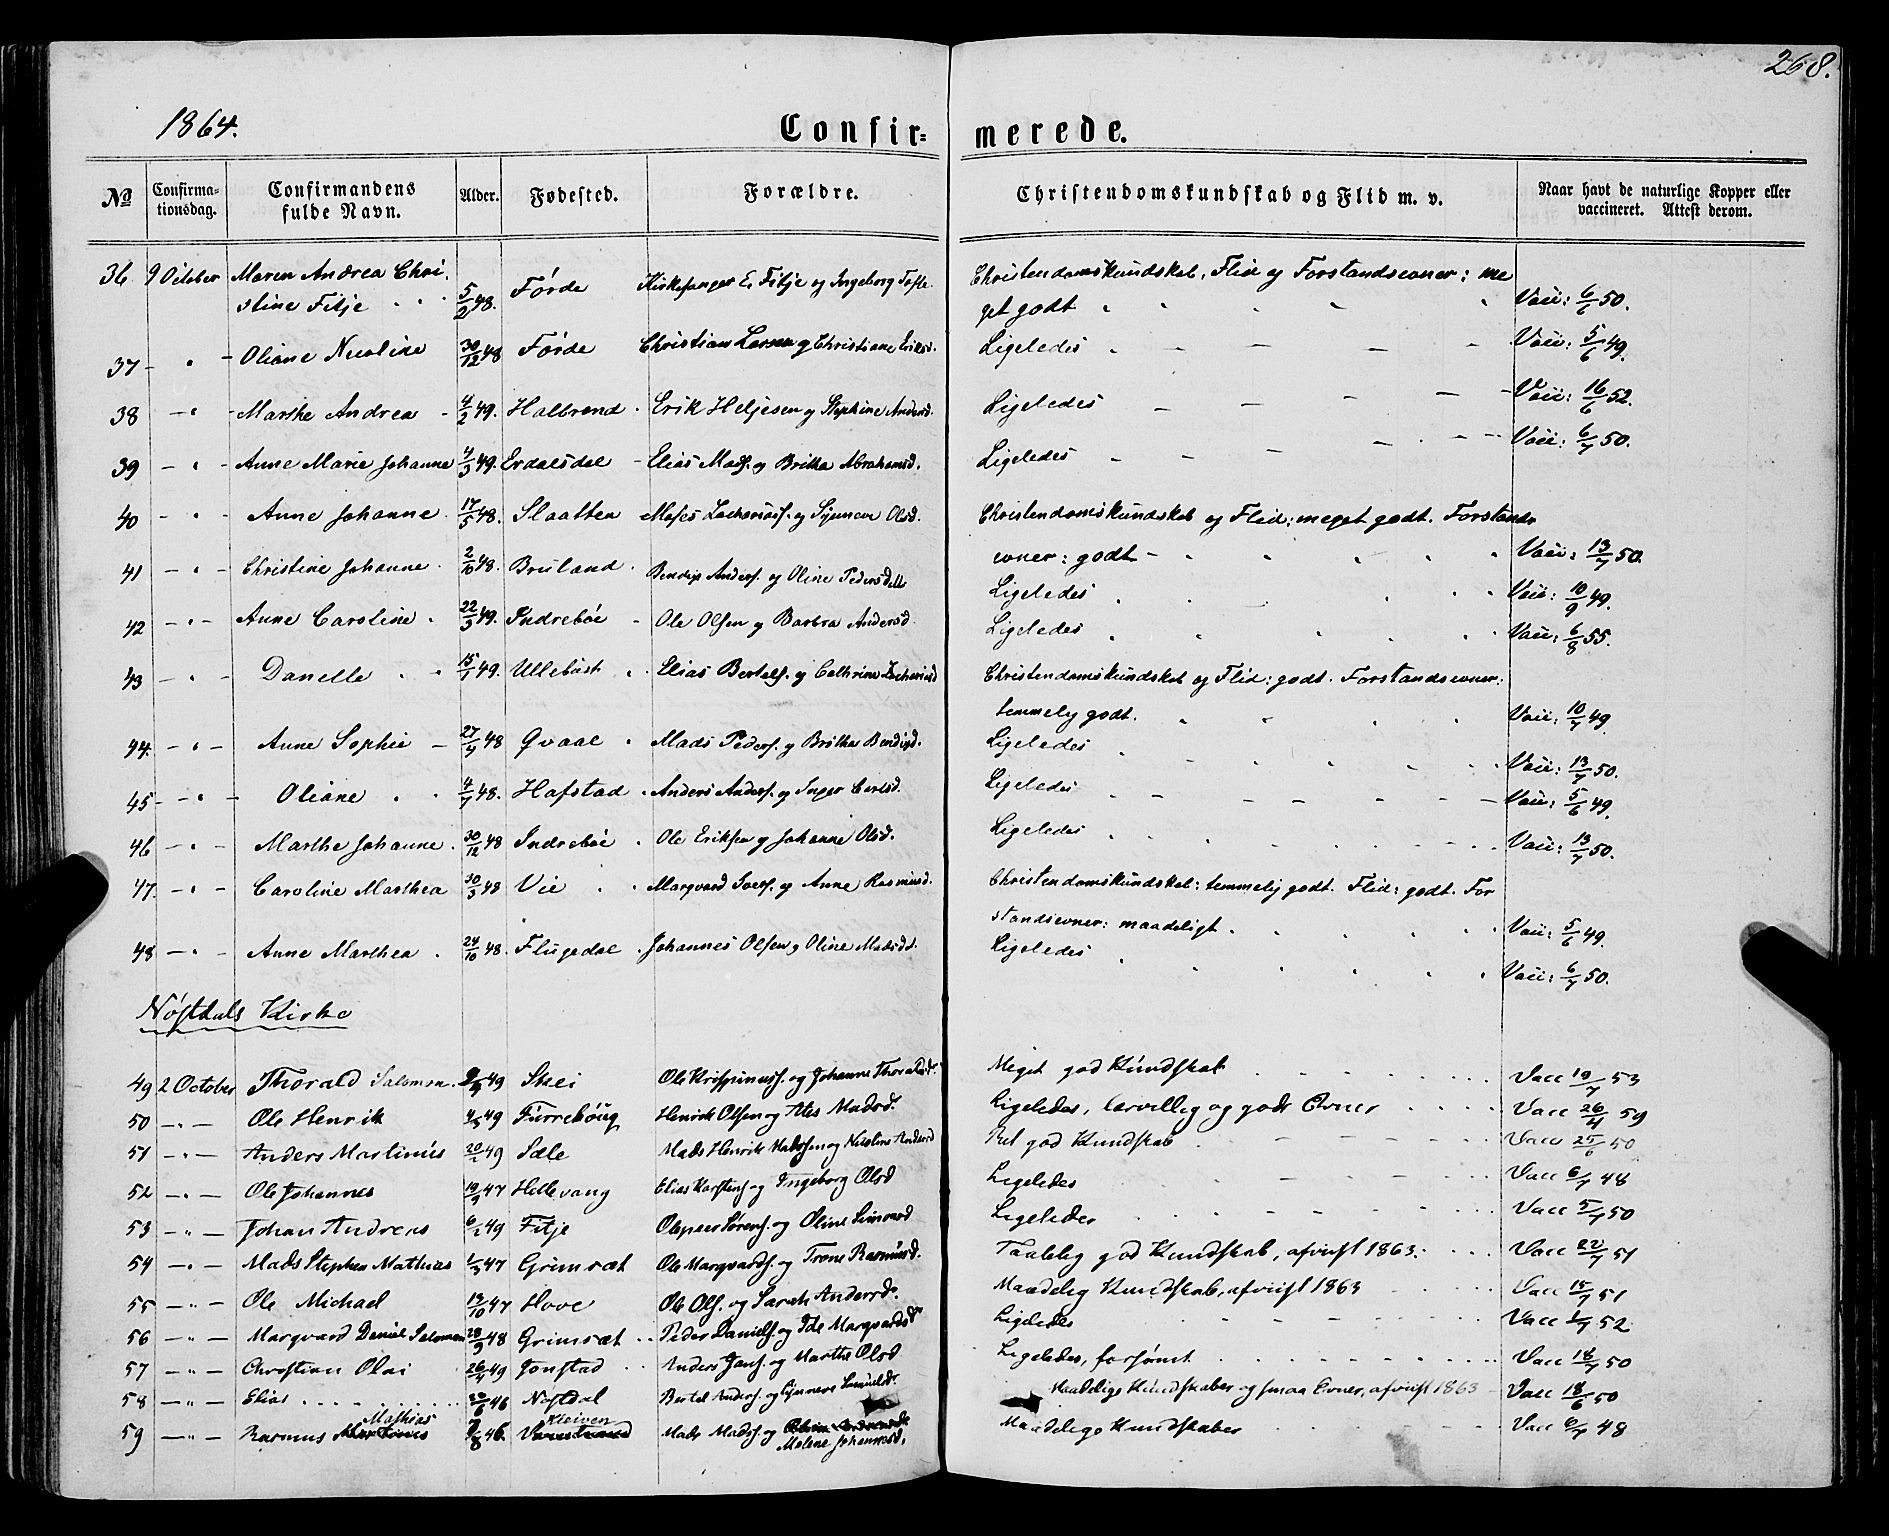 268.
1864.
Confir= merede.
No Confirma-tionsdag. Confirmandens fulde Navn. Alder. Fødested. Forældre. Christendomskundskab og Flid m. v. Naar havt de naturlige Kopper eller vaccineret. Attest derom.
36 9 October Maren Andrea Chri- Christendomskundskab, Flid og Forstandsevner: me
stine Fitje 5/2 48. Førde Kirkesanger E. Fitje og Ingeborg Tofte. get godt Vaii: 6/6 50.
37 - " - Oliane Nicoline 30/12 48 Førde Christian Larsen og Christiane Eriksd. Ligeledes - - - Vaii: 5/6 49.
38 - " - Marthe Andrea - 4/2 49. Halbrend. Erik Heljesen og Stephine Andersd. Ligeledes - - - Vaii: 16/6 52.
39 - " - Anne Marie Johanne 4/3 49. Erdalsdal - Elias Mads. og Britha Abrahamsd. Ligeledes - - - Vaii: 6/7 50.
40 - " - Anne Johanne. 17/5 48. Slaatten Moses Zachariass. og Synneve Olsd. Christendomskundskab og Flid: meget godt. Forstands
evner: godt - Vaii: 13/7 50.
41 - " - Christine Johanne. 2/10 48. Bruland. Bendix Anders. og Oline Pedersdtt Ligeledes Vaii: 10/9 49.
42 - " - Anne Caroline. 22/3 49. Indrebøe - Ole Olsen og Barbra Andersd. Ligeledes Vaii: 6/8 55.
43 - " - Danelle 15/1 49. Ullebust. Elias Bertels. og Cathrine Zachariasd Christendomskundskab og Flid: godt. Forstandsevner:
temmelig godt. Vaii: 10/7 49.
44. - " - Anne Sophie - 27/9 48 Qvaal Mads Peders. og Britha Bendixd. Ligeledes Vaii: 13/7 50.
45 - " - Oliane 4/7 48. Hafstad. Anders Anders. og Inger Carlsd. Ligeledes - - - Vaii: 5/6 49.
46 - " - Marthe Johanne. 30/12 48 Indrebøe. Ole Eriksen og Johanne Olsd. Ligeledes Vaii: 13/7 50.
47. - " - Caroline Marthea 30/3 48 Vie Margvard Ivers. og Anne Rasmusd. Christendomskundskab: temmelig godt. Flid: godt. For
standsevner: maadeligt. Vaii: 5/6 49.
48 - " - Anne Marthea. 24/10 48. Flugedal. Johannes Olsen og Oline Madsd. Ligeledes Vaii: 6/7 50.
Nøstdals Kirke
49 2 October Thorald Salomon. 49 Skei Ole Krispinuss. og Johanne Thora Ped. Meget god Kundskab Vacc 19/7 53
50 - " - Ole Henrik 49 Furrebøug Henrik Olsen og Ales Madsd. Ligeledes, lærvillig og gode Evner Vacc 26/4 59
51 - " - Anders Martinus 20/1 49 Sæle Mads Henrik Madssen og Nicoline Andersd Ret god Kundskab Vacc 25/6 50
52 - " - Ole Johannes 19/9 47 Hellevang Elias Karstens. og Ingeborg Olsd Ligeledes Vacc 6/7 48
53 - " - Johan Andreas 6/1 49 Fitje Ole Sørens. og Oline Simonsd Ligeledes Vacc 5/7 50
54 - " - Mads Stephen Mathias 47 Grimsæt Ole Margvards. og Trone Rasmusd. Taalelig god Kundskab, afvist 1863. Vacc 22/7 51
55 - " - Ole Michael 13/10 47 Hove Ole Ols. og Sarah Andersd. Maadelig Kundskab, afvist 1863 Vacc 15/7 51
56 - " - Margvard Daniel Salomon 20/9 48 Grimsæt Peder Daniels. og Ide Margvardsd Ligeledes Vacc 52
57 - " - Christian Olai 26/4 49 Jonstad Anders Jans. og Marthe Olsd Ligeledes, forsømt Vacc 18/7 50
58 - " - Elias 20/6 46 Nøstdal Bertel Anders. og Synneve Samuelsd. Maadelige Kundskaber og smaa Evner, afvist 1863 - Vacc 18/6 50
Mathias Kleiven
59 - " - Rasmus 8 46. Mads Madss. og Maadelige Kundskaber Vacc 6/7 48
Malene Johannesd.